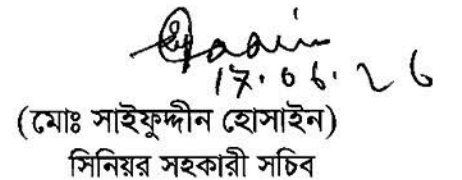 17.06.26
(মোঃ সাইফুদ্দীন হোসাইন)
সিনিয়র সহকারী সচিব